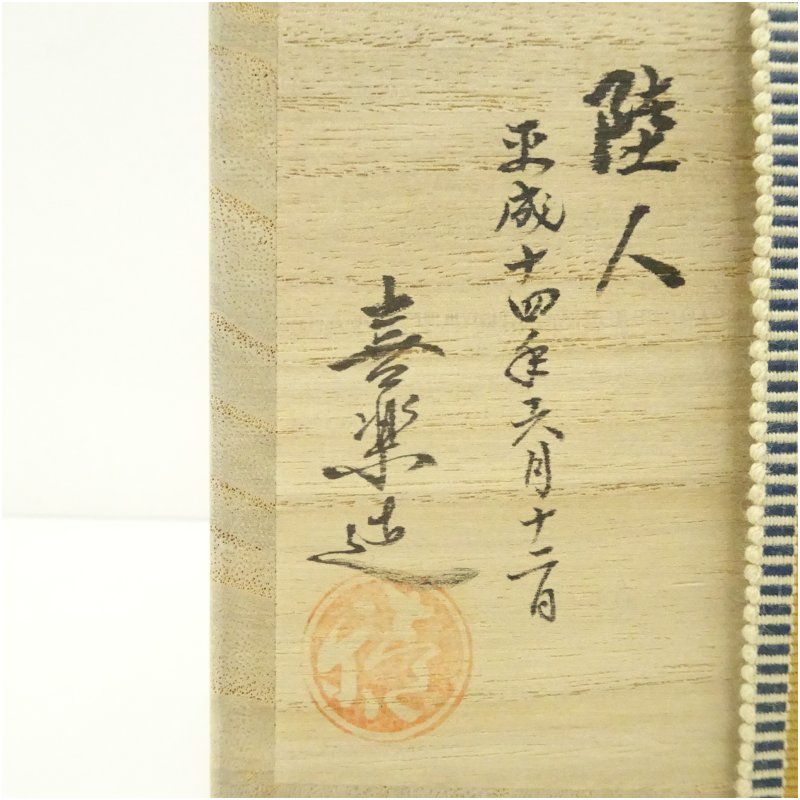 陸人
平成十四年六月十二日
喜楽造